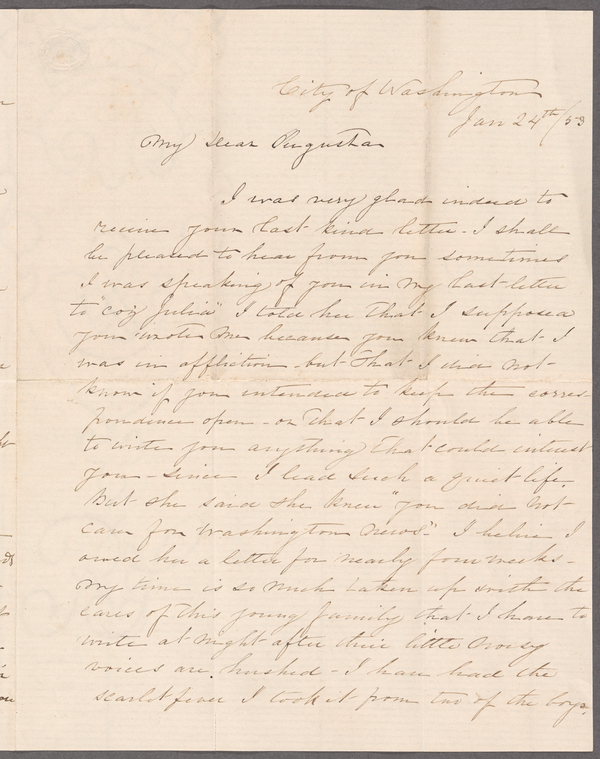 City of Washington
Jan 24th /53
My Dear Augusta
I was very glad indeed to
receive your last kind letter - I shall
be pleased to hear from you sometimes
I was speaking of you in my last letter
to "coz Julia" I told her that I supposed
you wrote me because you knew that I
was in affliction - but that I did not -
know if you intended to keep the corres
pondence open - or that I should be able
to write you anything that could interest
you - since I lead such a quiet life.
But she said she knew "you did not
care for Washington news." I believe I
owed her a letter for nearly four weeks -
my time is so much taken up with the
cares of this young family that I have to
write at night after their little noisy
voices are hushed - I have had the
scarlet fever I took it from two of the boys.